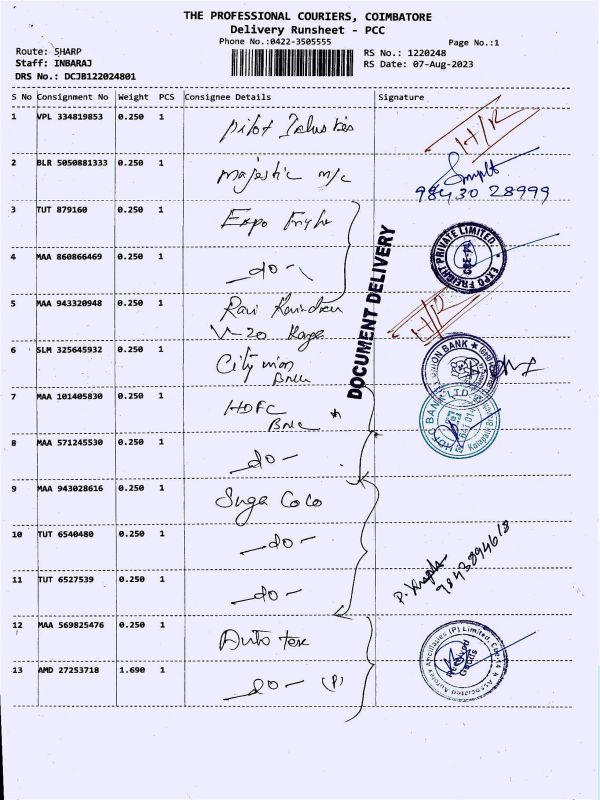 THE PROFESSIONAL COURIERS, COIMBATORE
Delivery Runsheet - PCC
Phone No.:0422-3505555
Page No.:1
Route: SHARP
RS No.: 1220248
Staff: INBARAJ
RS Date: 07-Aug-2023
DRS No.: DCJB122024801
S No Consignment No Weight PCS Consignee Details Signature
1 VPL 334819853 0.250 1 Pilot H/R
2 BLR 5050881333 0.250 1 Majestic m/c
98430 28999
3 TUT 879160 0.250 1 Expo
EXPO FREIGHT PRIVATE LIMITED
4 MAA 860866469 0.250 1 -do-
DOCUMENT DELIVERY
5 MAA 943320948 0.250 1 Ravi H/R
V-20
6 SLM 325645932 0.250 1 City union
UNION BANK
7 MAA 101405830 0.250 1 HDFC
HDFC BANK LTD
8 MAA 571245530 0.250 1 -do-
9 MAA 943028616 0.250 1 Suga Coco
10 TUT 6540480 0.250 1 -do-
11 TUT 6527539 0.250 1 -do-
12 MAA 569825476 0.250 1 Auto tek
13 AMD 27253718 1.690 1 do - (P)
Received Goods